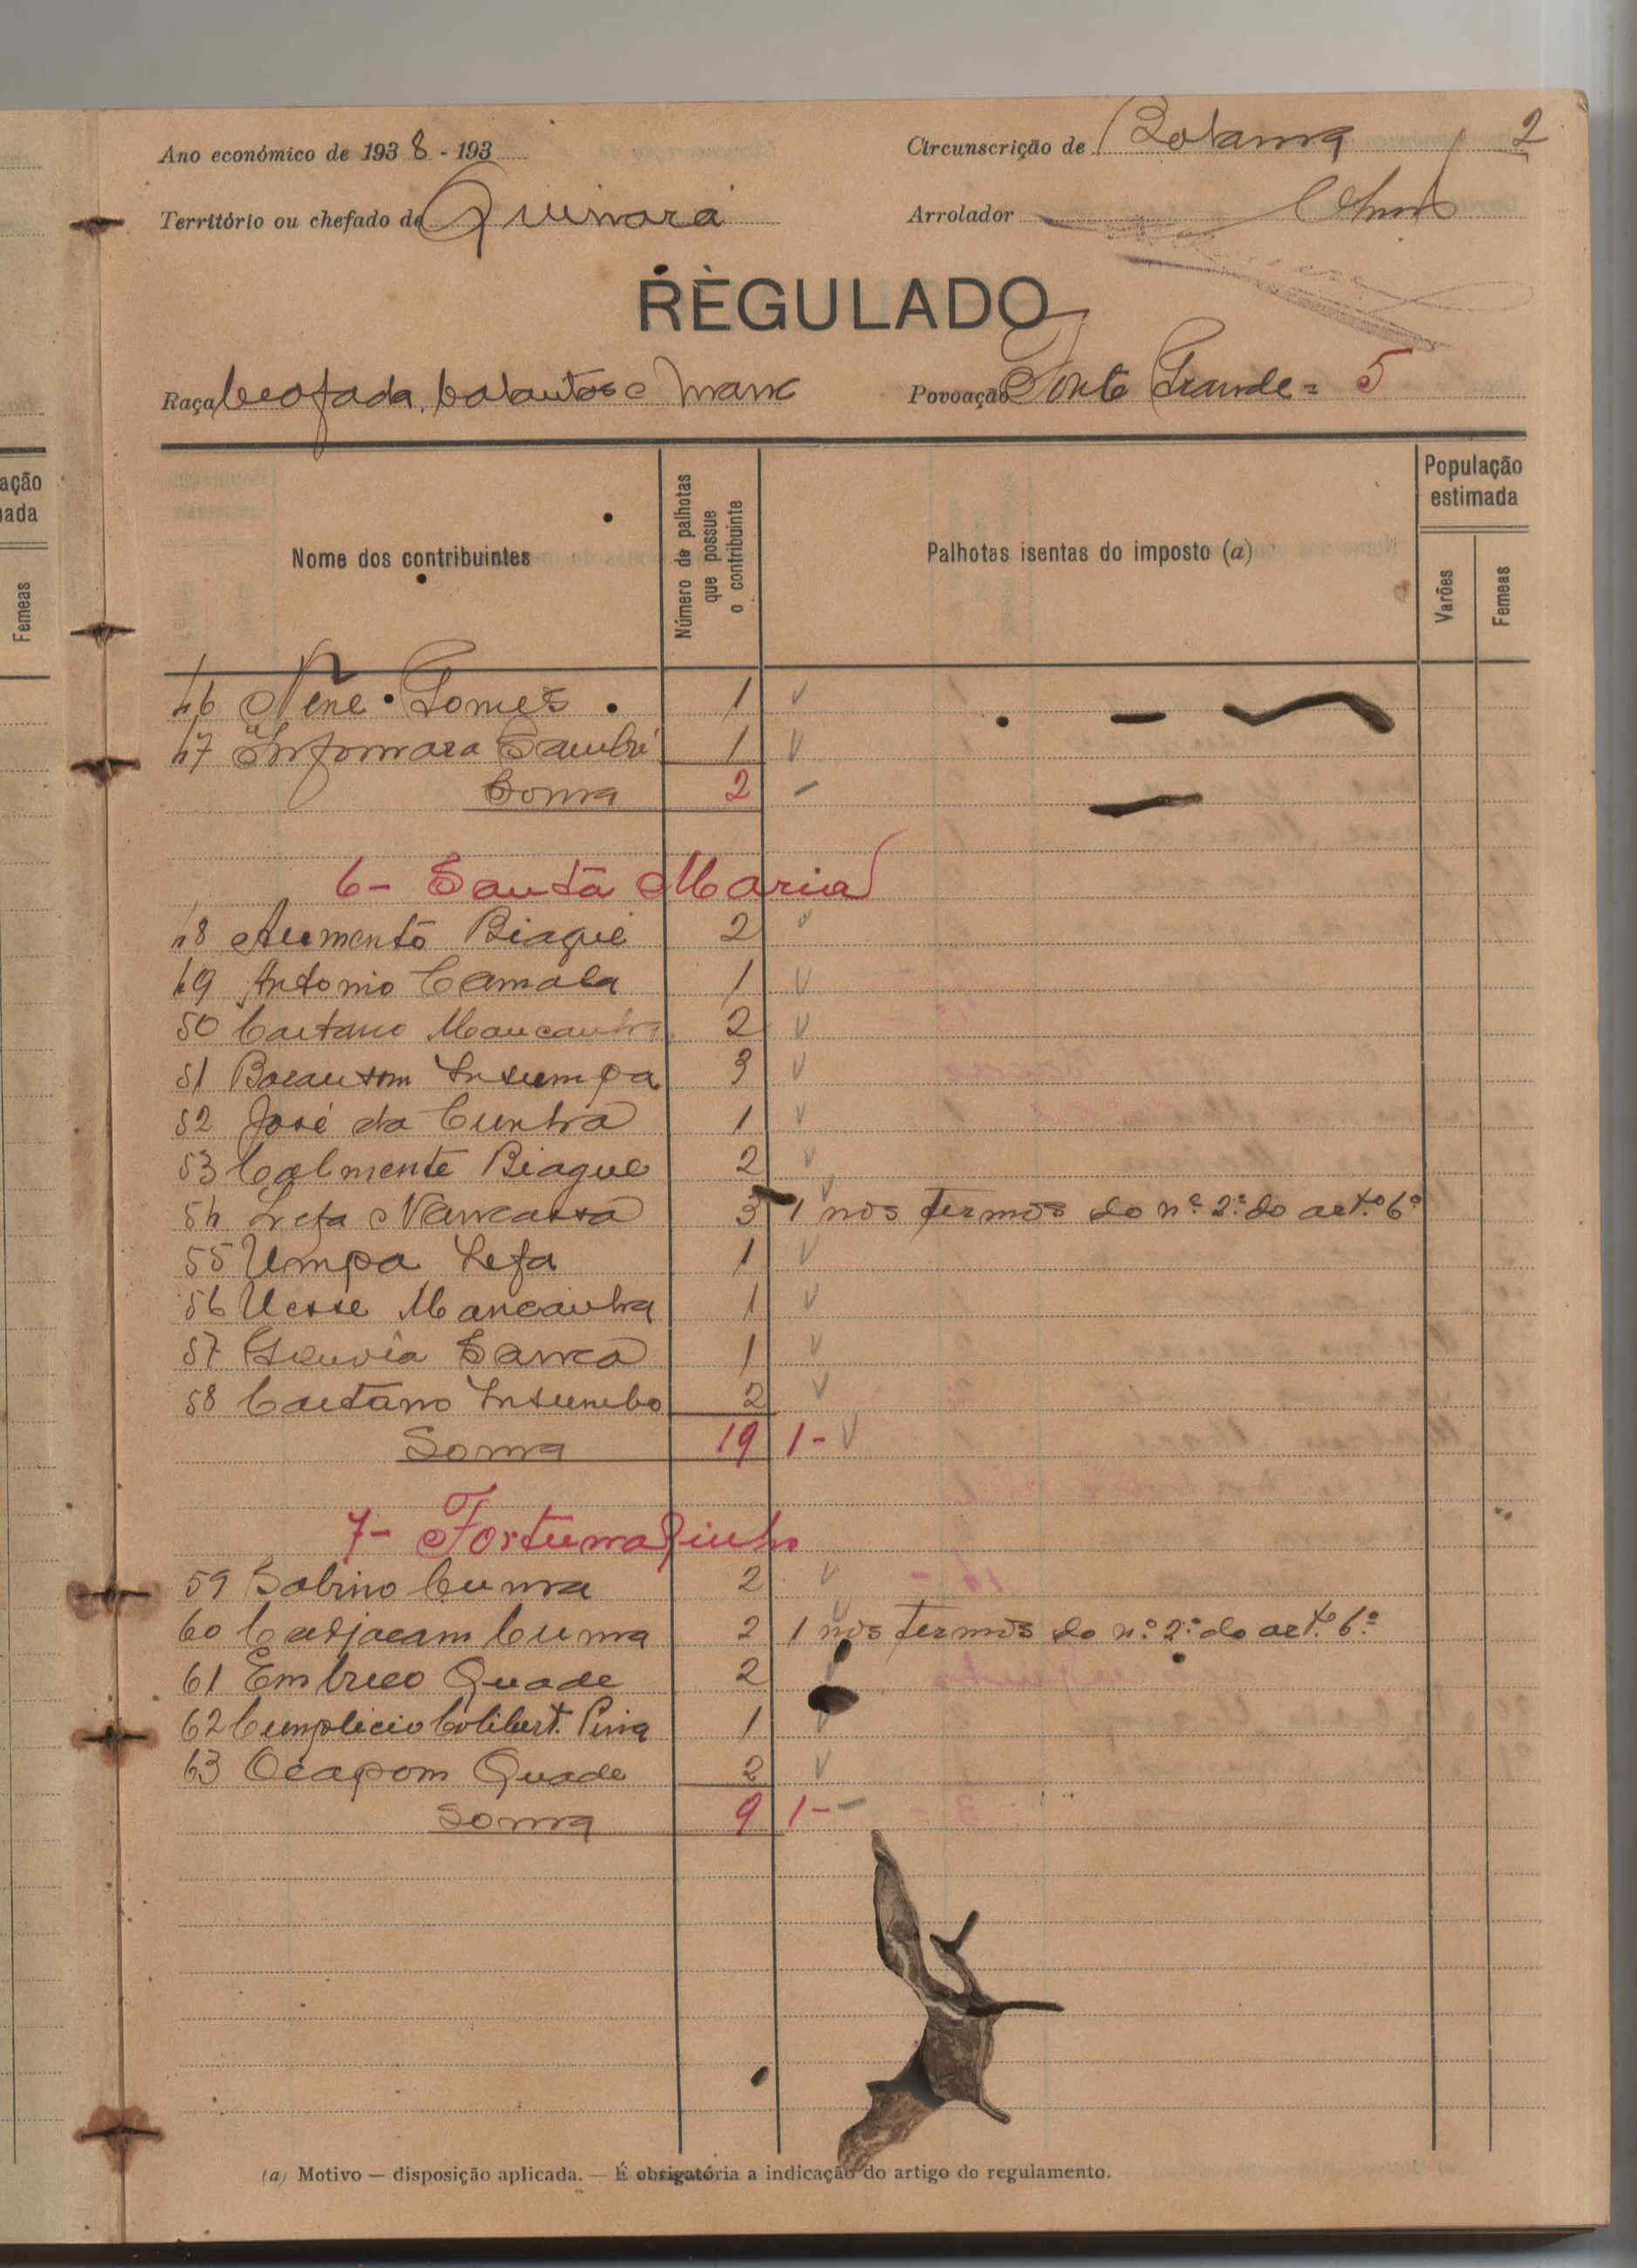 Ano económico de 1938 - 193
Circunscrição de Bolama
2
Território ou chefado de Quinara
Arrolador
REGULADO
Raça beafada, balantas e manc
Povoação Ponte Grande = 5
ação
ada
Femeas
Nome dos contribuintes
Número de palhotas que possue o contribuinte
Palhotas isentas do imposto (a)
População estimada
Varões
Femeas
46 Nene Gomes 1
47 Infomara Sambú 1
Soma 2 -
6- Santa Maria
48 Aumento Biague 2
49 Antonio Camala 1
50 Caetano Mancanha 2
51 Insumpa 3
52 José da Cunha 1
53 Calmente Biague 2
54 Lefa Nancassa 3 1 nos termos do nº 2º do artº 6º
55 Umpa Lefa 1
56 Uesse Mancanha 1
57 Sanca 1
58 Caetano Insumbo 2
Soma 19 1-
7- Fortunazinho
59 Sabino Cunna 2
60 Cunna 2 1 nos termos do nº 2º do artº 6º
61 Embrico Quade 2
62 Cumplicio 1
63 Ocapom Quade 2
Soma 9 1-
(a) Motivo — disposição aplicada. — É obrigatória a indicação do artigo do regulamento.